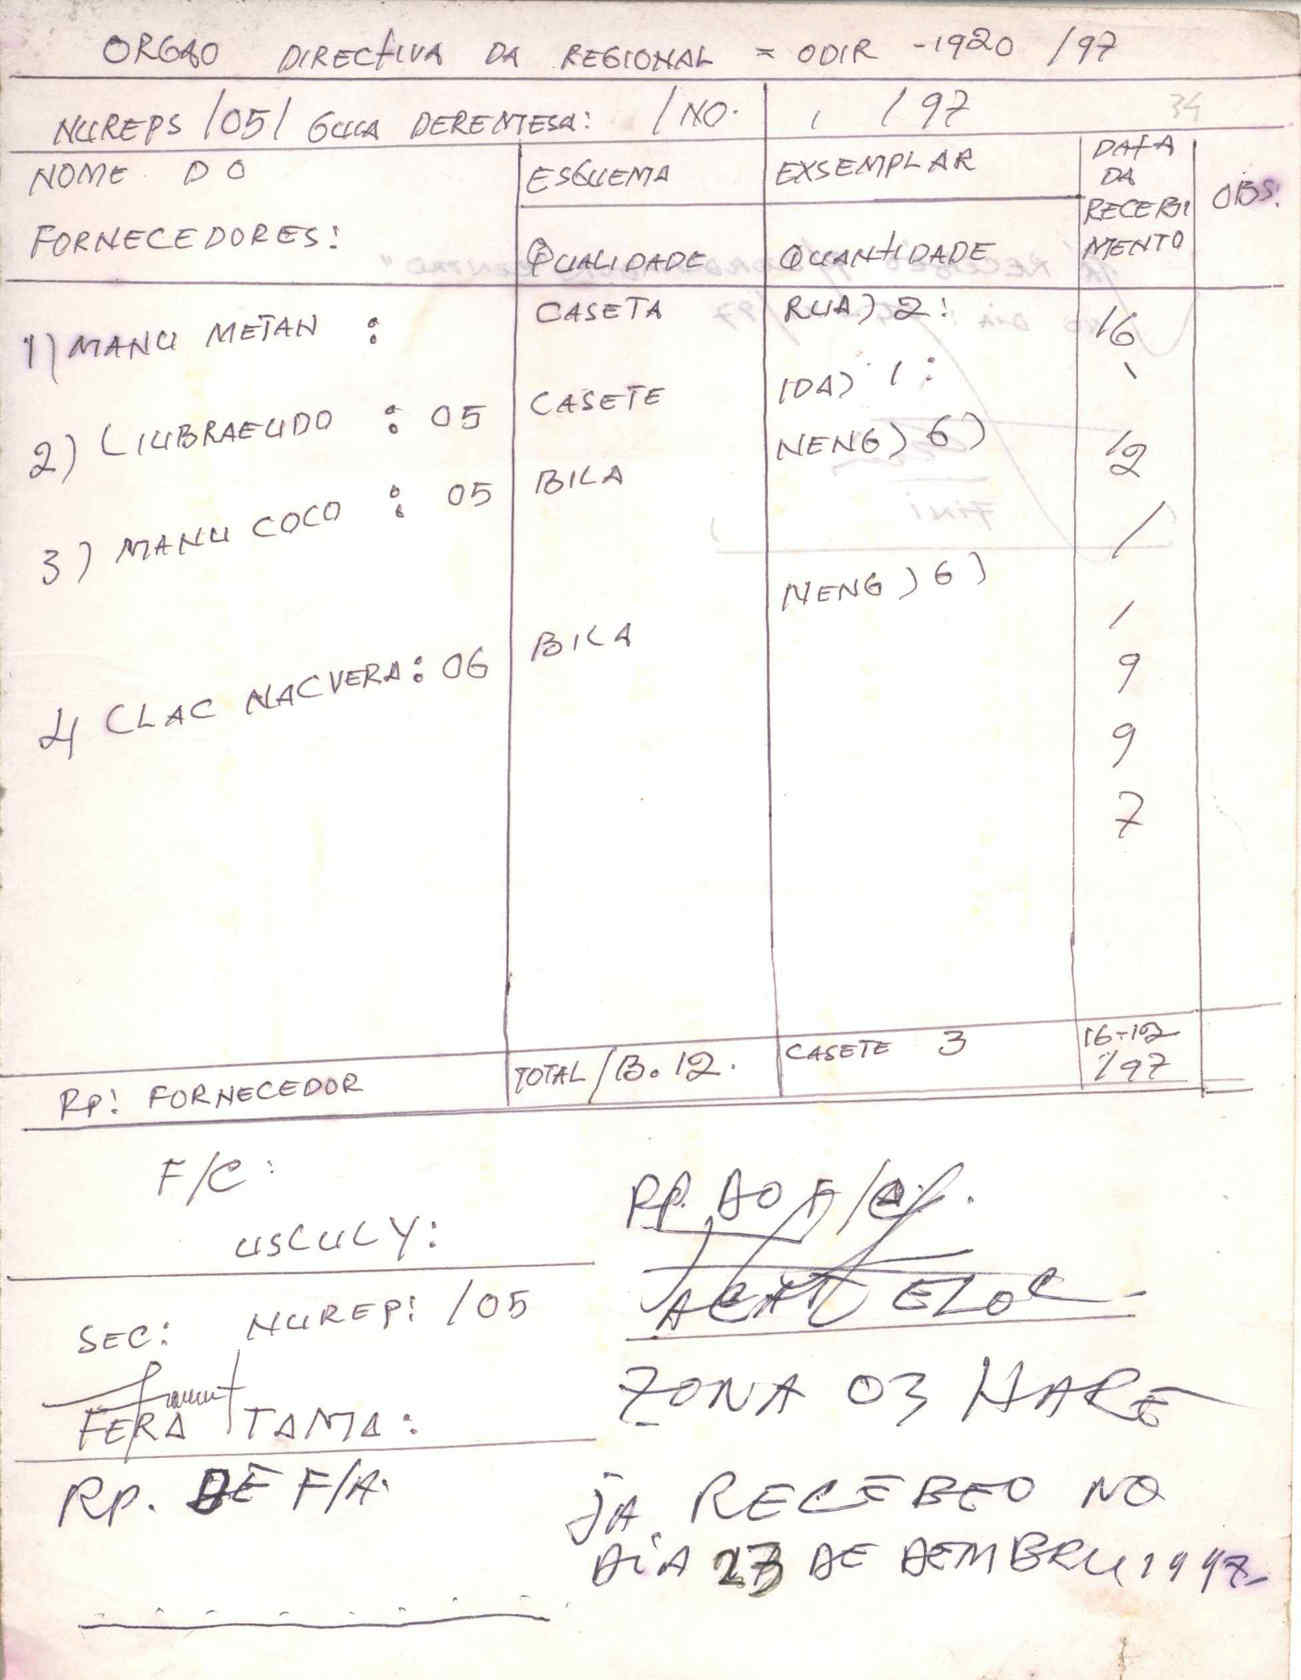 ORGAO DIRECTIVA DA REGIONAL = ODIR -1920 /97
NUREPS /05/ GUIA DEREMESA: /NO. , /97 34
NOME DO FORNECEDORES:
ESGUEMA
EXSEMPLAR
DATA DA RECEBI MENTO
OBS.
QUALIDADE
QUANTIDADE
1) MANU METAN : CASETA RUA) 2:
2) LIUBRAEUDO : 05 CASETE IDA) 1:
3) MANU COCO : 05 BILA NENG) 6)
4 CLAC NACVERA: 06 BILA NENG) 6)
16
12
/
1
9
9
7
RP: FORNECEDOR TOTAL /B. 12. CASETE 3 16-12 /97
F/C:
USCULY:
SEC: NUREP: /05
FERA TAMA:
RP. DE F/A.
RP. AO F/A.
ELOC
ZONA 03 HARE
JA RECEBEO NO
DIA 23 DE DEMBRU 1997-